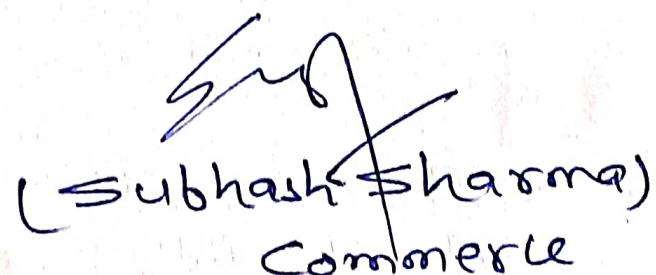 (Subhash Sharma)
Commerce